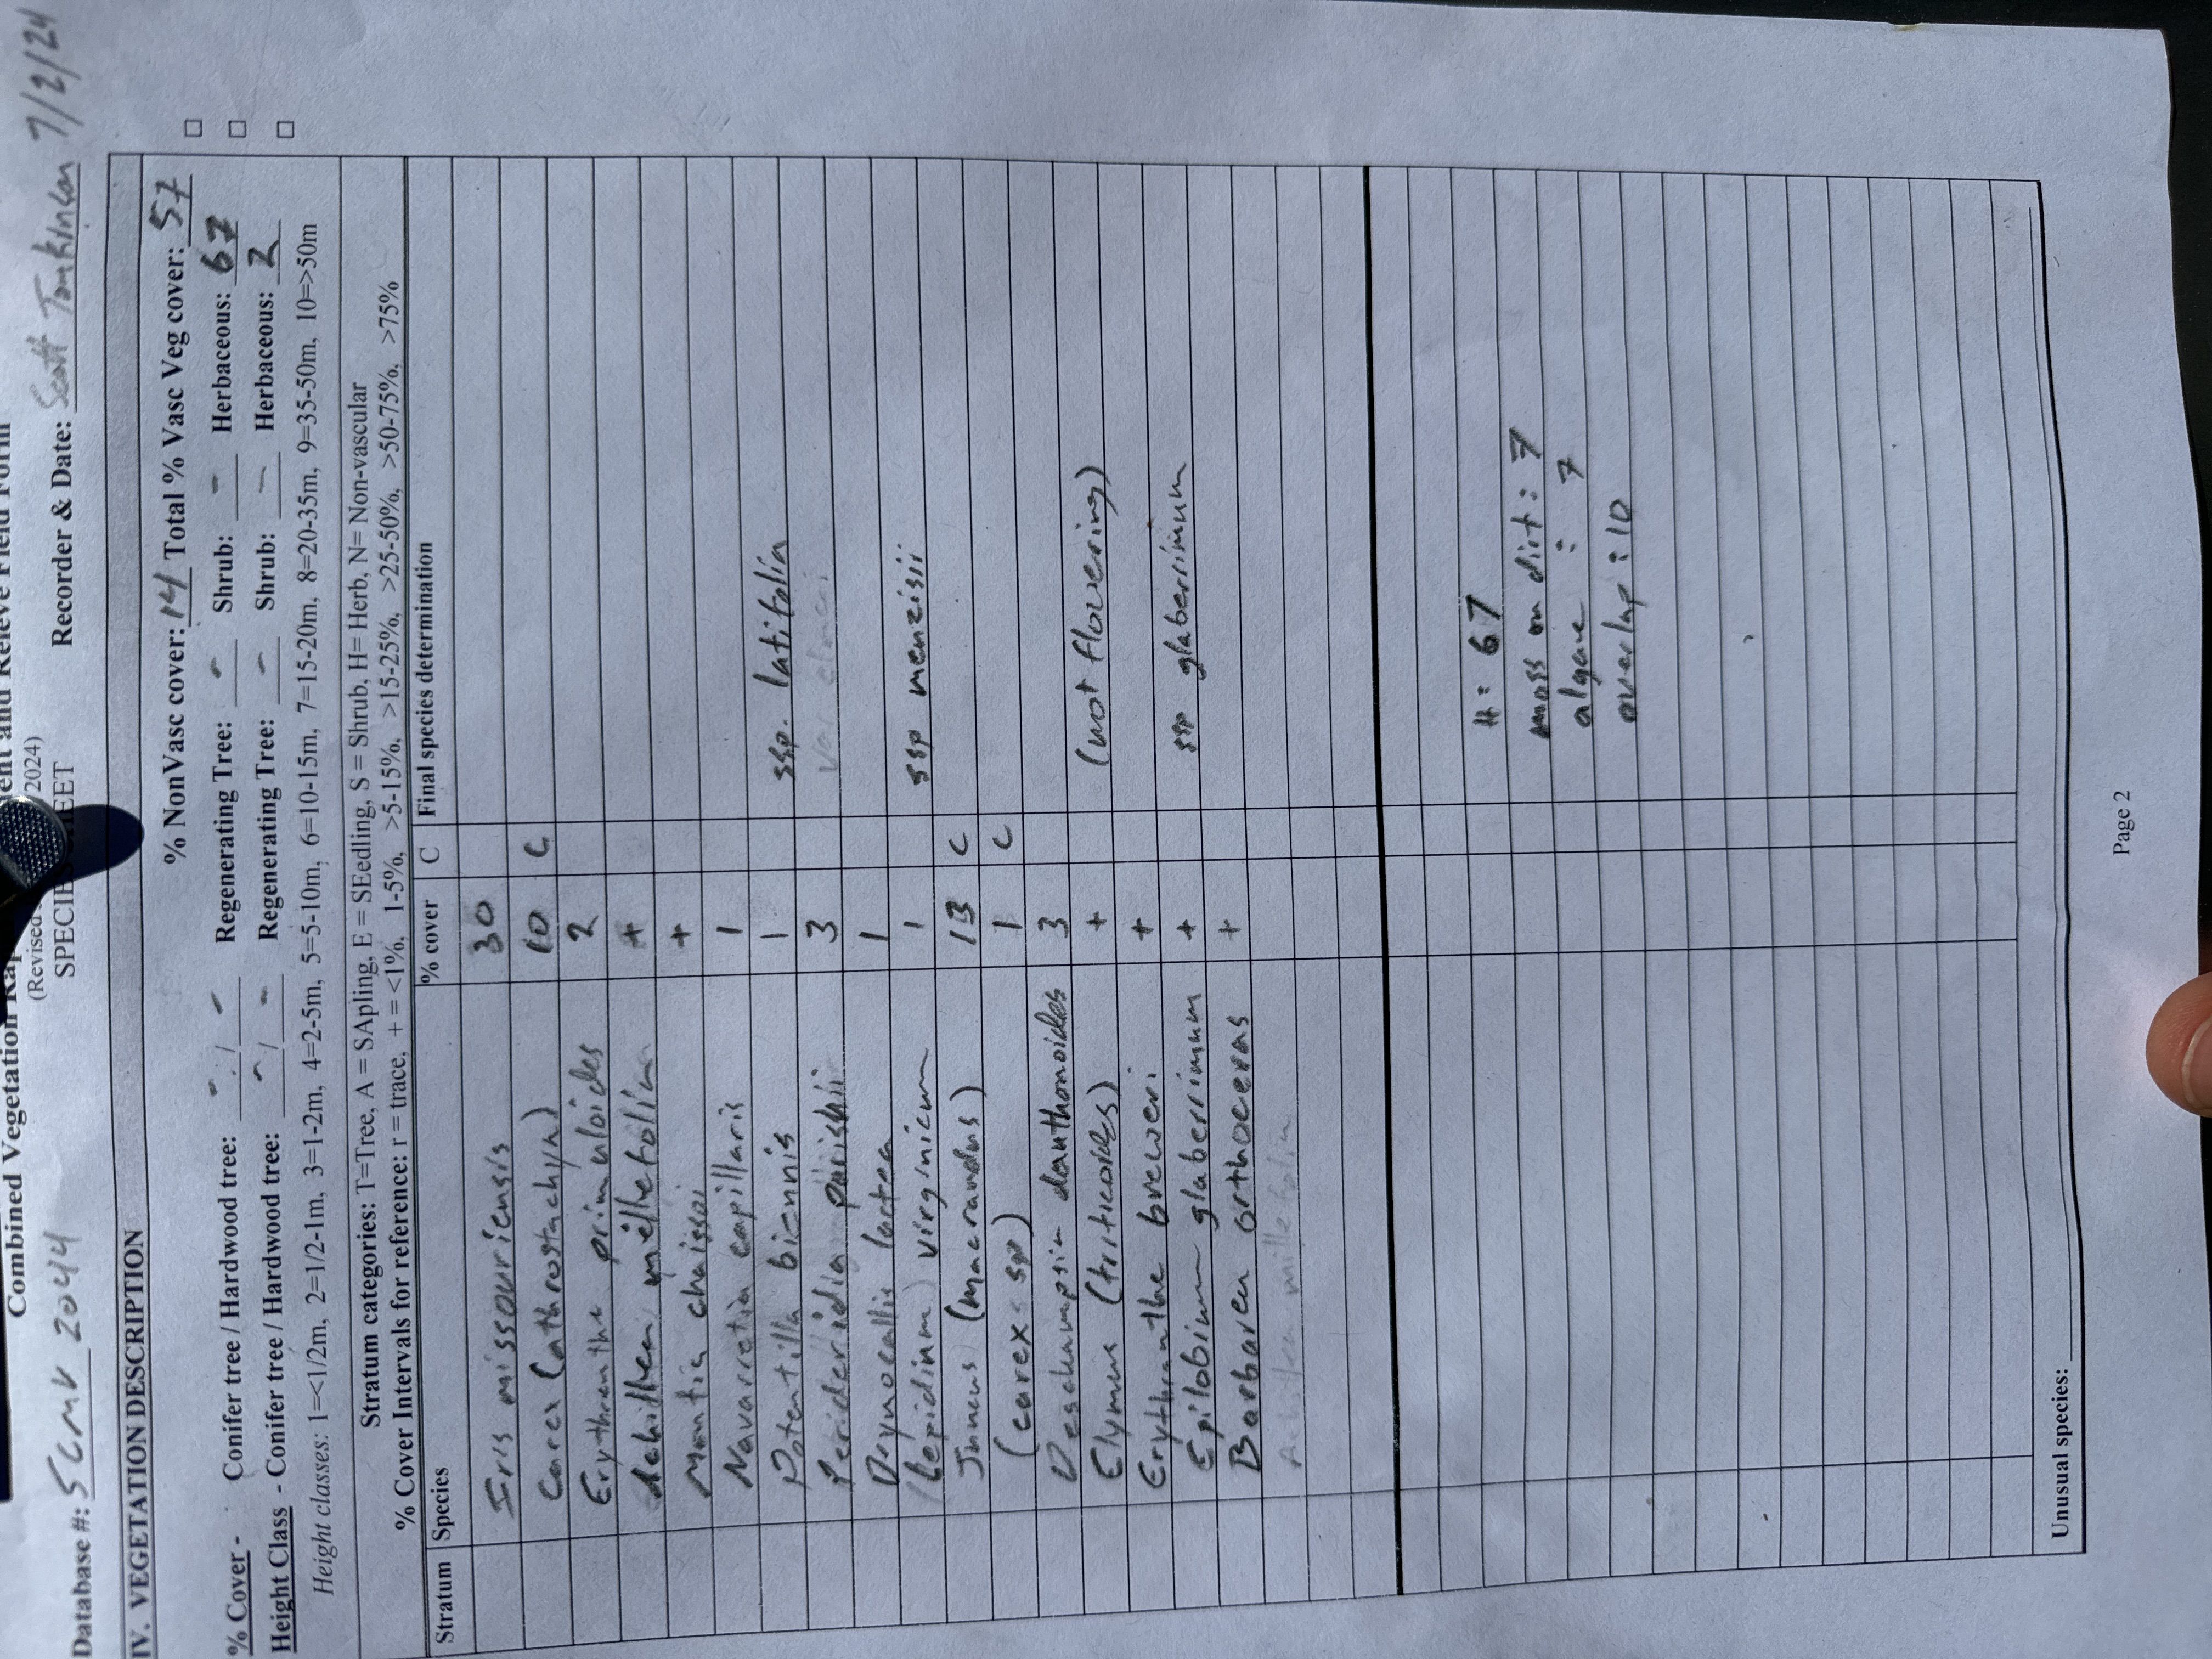 Combined Vegetation
ent and Relevé Field Form
(Revised 2024)
Database #: SCMV 2044
SPECIES SHEET
Recorder & Date: Scott Tomkinson 7/2/24
IV. VEGETATION DESCRIPTION
% NonVasc cover: 14 Total % Vasc Veg cover: 57
% Cover - Conifer tree / Hardwood tree: - / - Regenerating Tree: - Shrub: - Herbaceous: 67
Height Class - Conifer tree / Hardwood tree: - / - Regenerating Tree: - Shrub: - Herbaceous: 2
Height classes: 1=<1/2m, 2=1/2-1m, 3=1-2m, 4=2-5m, 5=5-10m, 6=10-15m, 7=15-20m, 8=20-35m, 9=35-50m, 10=>50m
Stratum categories: T=Tree, A = SApling, E = SEedling, S = Shrub, H= Herb, N= Non-vascular
% Cover Intervals for reference: r = trace, + = <1%, 1-5%, >5-15%, >15-25%, >25-50%, >50-75%, >75%
Stratum Species % cover C Final species determination
Iris missouriensis 30
Carex (athrostachya) 10 C
Erythranthe primuloides 2
Achillea millefolium +
Montia chaissoi +
Navarretia capillaris 1
Potentilla biennis 1 ssp. latifolia
Perideridia parishii 3
Drymocallis lactea 1
(Lepidium) virginicum 1 ssp menzeisii
Juncus (macrandus) 13 C
(carex sp) 1 C
Deschampsia danthonoides 3
Elymus (triticoides) + (not flowering)
Erythranthe breweri +
Epilobium glaberrimum + ssp glaberrimum
Barbarea orthoceras +
Achillea millefolium
H = 67
moss on dirt: 7
algae : 7
overlap : 10
Unusual species:
Page 2